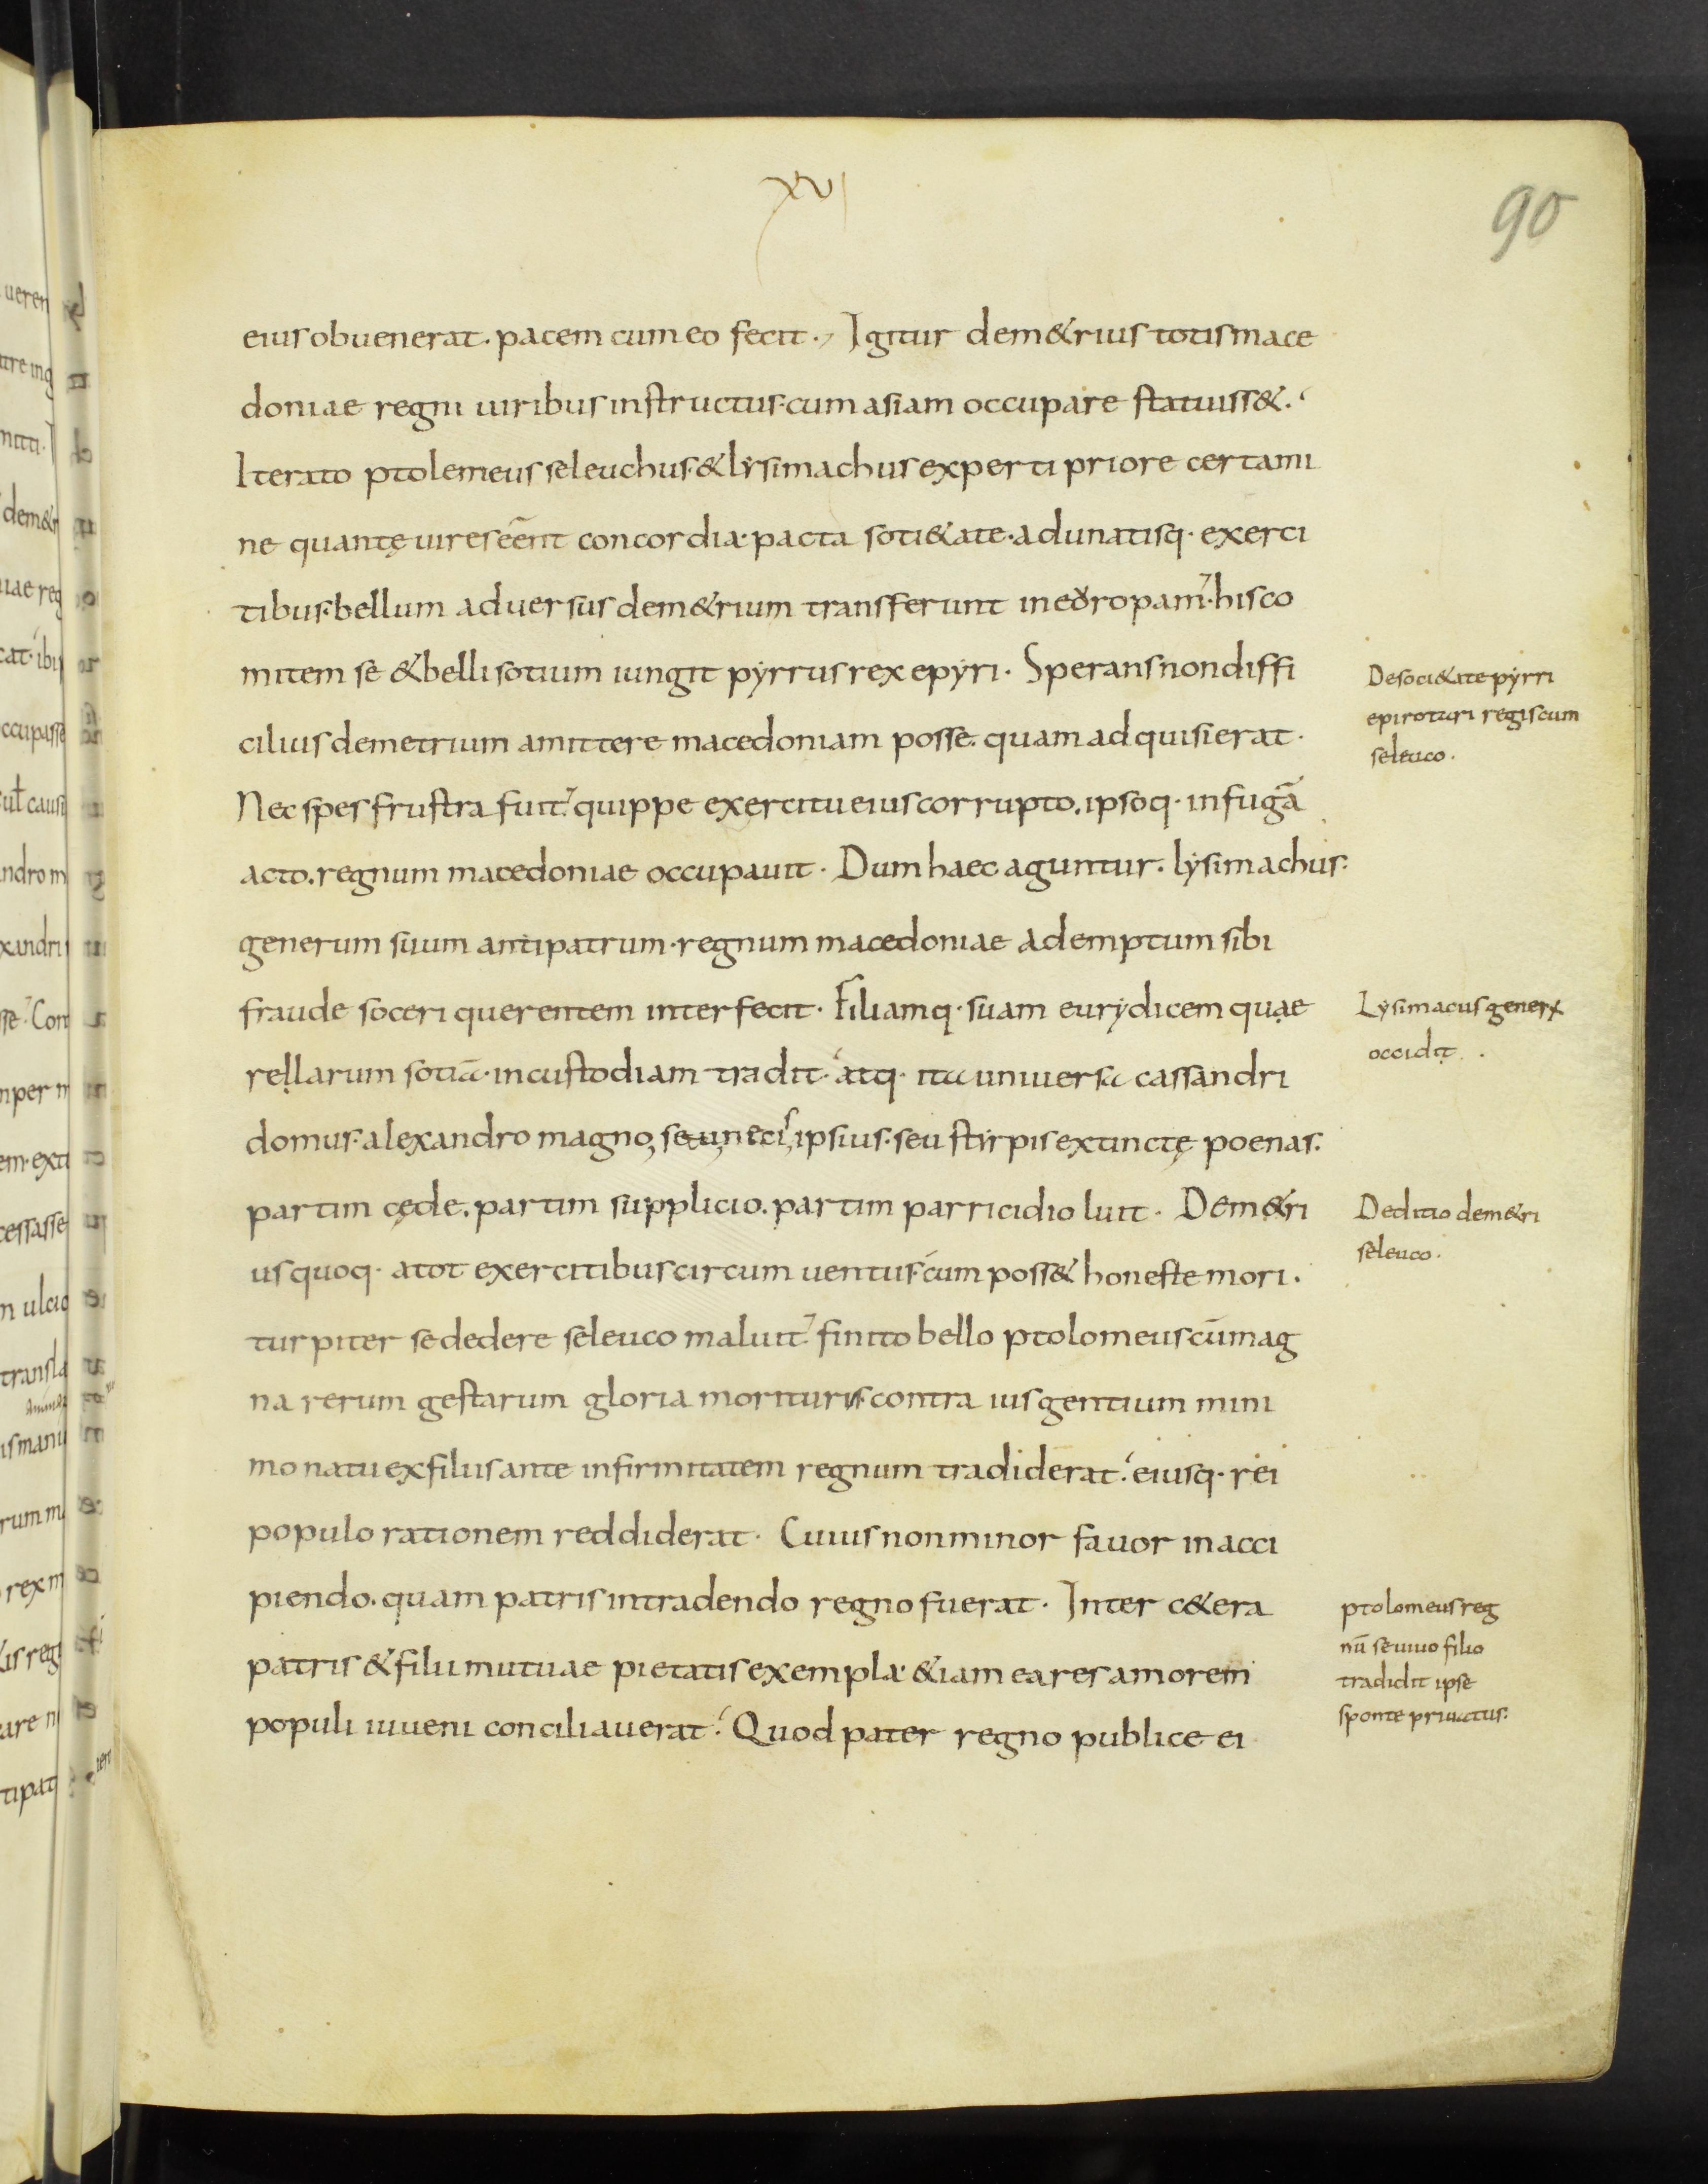 XVI
90
eius obuenerat. pacem cum eo fecit. Igitur dem&rius totis mace
doniae regni uiribus instructus. cum asiam occupare statuiss&.
Iterato ptolemeus seleuchus. & lysimachus experti priore certami
ne quantę uires eēnt concordia. pacta soti&ate. adunatisq. exerci
tibus. bellum aduersus dem&rium transferunt in europam. his co
mitem se & belli sotium iungit pyrrus rex epyri. Sperans non diffi
cilius demetrium amittere macedoniam posse. quam adquisierat.
Nec spes frustra fuit. quippe exercitu eius corrupto. ipsoq. in fugā
acto. regnum macedoniae occupauit. Dum haec aguntur. lysimachus.
generum suum antipatrum. regnum macedoniae ademptum sibi
fraude soceri querentem interfecit. Filiamq. suam eurydicem quae
rellarum sotiā. in custodiam tradit. atq. ita uniuersa cassandri
domus. alexandro magno, seu necis, ipsius. seu styrpis extinctę poenas.
partim cęde. partim supplicio. partim parricidio luit. Dem&ri
us quoq. a tot exercitibus circum uentus. cum poss& honeste mori.
turpiter se dedere seleuco maluit. finito bello ptolomeus cū mag
na rerum gestarum gloria moriturus. contra ius gentium mini
mo natu ex filiis ante infirmitatem regnum tradiderat. eiusq. rei
populo rationem reddiderat. Cuius non minor fauor in acci
piendo. quam patris in tradendo regno fuerat. Inter c&era
patris & filii mutuae pietatis exempla. &iam ea res amorem
populi iuueni conciliauerat. Quod pater regno publice ei
De soci&ate pyrri
epirotari regis cum
seleuco.
Lysimacus generū
occidit.
Deditio dem&ri
seleuco.
ptolomeus reg
nū se uiuo filio
tradidit ipse
sponte priuatus.